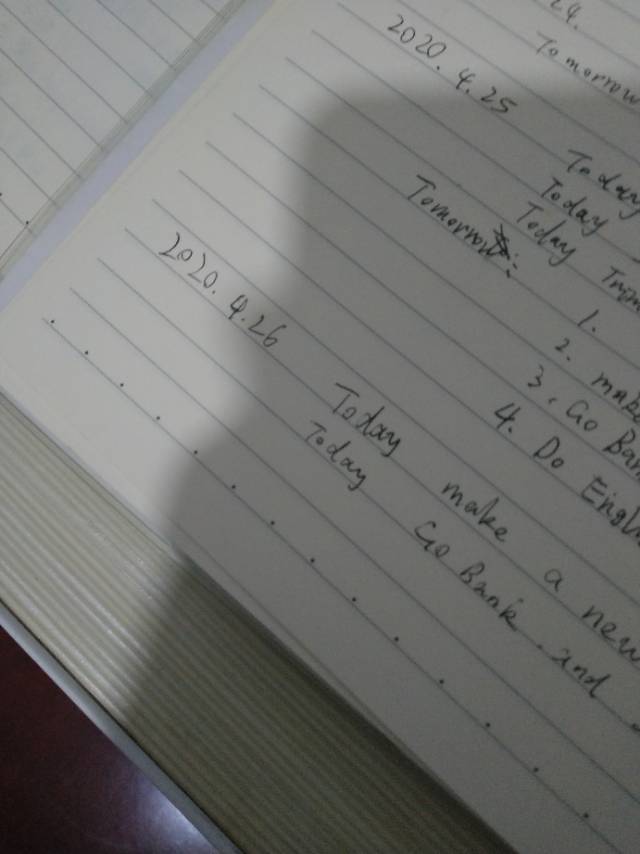 24.
Tomorrow
2020.4.25
Today
Today
Today
Tomorrow:
1.
2. make
3. Go Bank
4. Do
2020.4.26
Today make a new
Today Go Bank. and